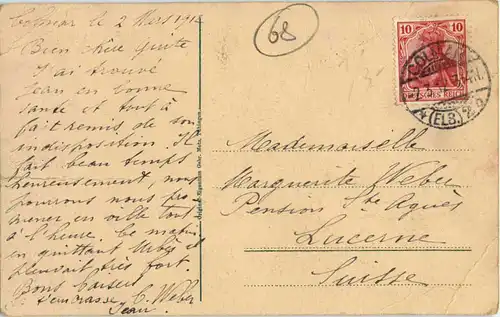 Colmar le 2 Mars 191
Bien chère
J'ai trouvé
Jean en bonne
santé et tout à
fait remis de son
indisposition. Il
fait beau temps
heureusement, nous
pourrons nous pro
mener en ville tout
à l'heure. Ce matin
en quittant Urbès il
pleuvait très fort.
Bons baisers
C. Weber
Jean
68
10 10
DEUTSCHES REICH
COLMAR
(ELS.)
Mademoiselle
Marguerite Weber
Pension Ste Agnès
Lucerne
Suisse